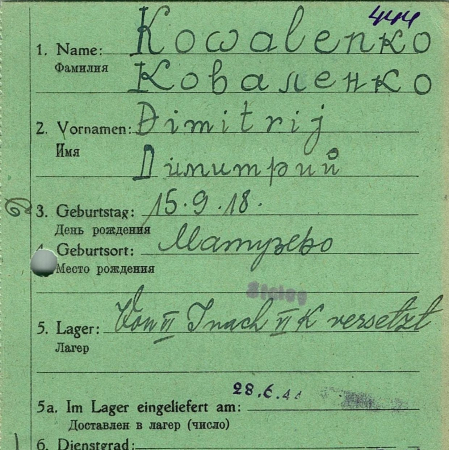 444
1. Name: Kowalenko
Фамилия Коваленко
2. Vornamen: Dimitrij
Имя Димитрий
3. Geburtstag: 15.9.18.
День рождения
4. Geburtsort: Матузево
Место рождения
Stalag
5. Lager: Von II J nach VI K versetzt
Лагерь
28.6.44
5a. Im Lager eingeliefert am:
Доставлен в лагерь (число)
6. Dienstgrad: